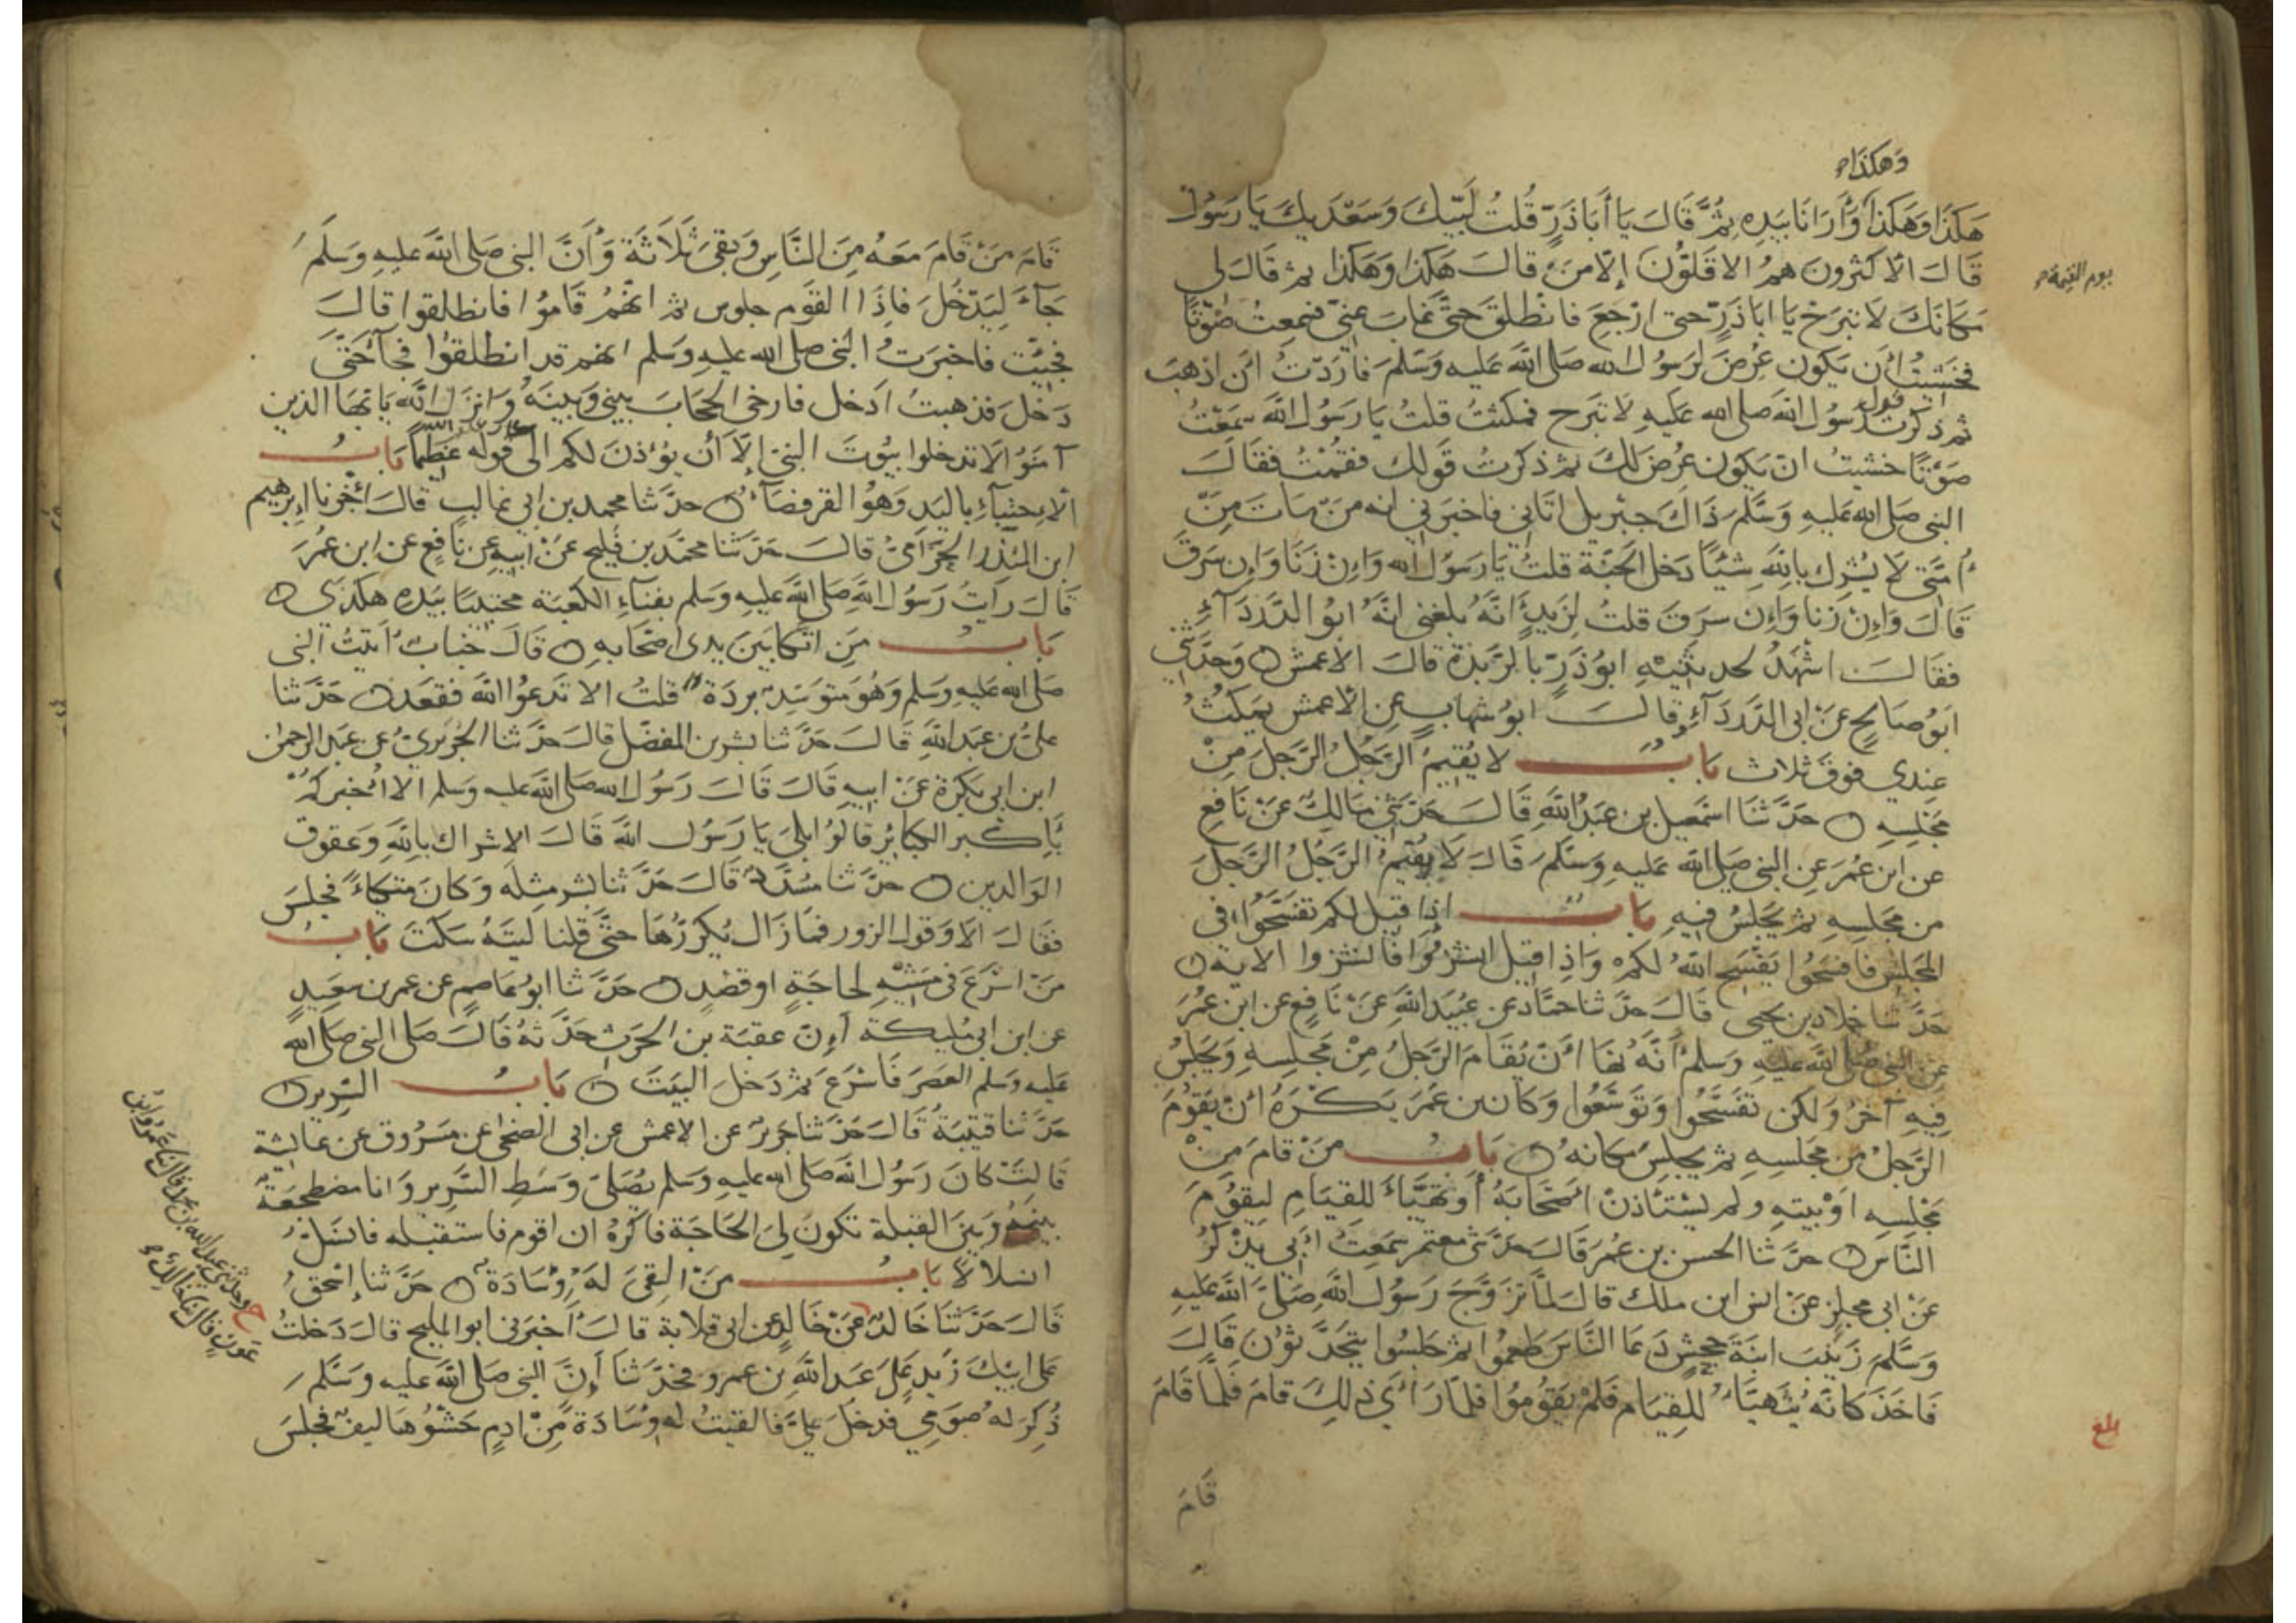 وهكذا
هَكَذَا وَهَكَذَا وَأَرَانَا بِيَدِهِ ثُمَّ قَالَ يَا أَبَا ذَرٍّ قُلتُ لَبَّيْكَ وَسَعْدَيكَ يَا رَسُولَ
قَالَ الاكثرونَ همُ الاقَلُّونَ إلا منْ قالَ هَكذا وَهَكذا ثم قالَ لي
يوم القيمة
مَكانَكَ لا تبرَحْ يا ابا ذرٍّ حتى ارْجعَ فانْطلقَ حتَّى غابَ عني فسمِعتُ صَوْتًا
فخشيتُ أن يكون عُرِضَ لرَسُول الله صلى الله عَليه وَسَلمَ فارَدْتُ ان اذهبَ
ثم ذكرت قول رسُول الله صلى الله عَليهِ لا تبرح فمكثتُ قلتُ يا رَسُول الله سَمعْتُ
صَوْتًا خشيتُ ان يكون عُرضَ لكَ ثم ذكرتُ قَولك فقُمْتُ فقالَ
النبي صَلى الله عَليهِ وَسَلمَ ذَاكَ جبْريل اتاني فاخبرَني انه منْ ماتَ مِنْ
أُمتي لا يُشرِك باللهِ شَيْئًا دَخل الجنَّة قلتُ يَا رَسُول الله وَإن زَنَا وَإن سَرَقَ
قَالَ وَإنْ زنا وَإن سَرقَ قلتُ لِزَيدٍ انَّهُ بلغني انَّهُ ابوُ الدَّرْدَآءِ
فقالَ اشْهَدُ لحدثنيهِ ابوُ ذَرٍّ بالرَّبذةِ قالَ الاعمش وَحَدَّثني
ابوُ صَالحٍ عَنْ ابى الدَّرْدَآءِ وقالَ ابوُ شهابٍ عن الاعمش يمكثُ
عندي فوقَ ثلاث بابُ لا يُقيمُ الرَّجُلُ الرَّجلَ مِنْ
مجلِسِهِ حدَّثنَا اسْمعيل بن عَبدُ اللهِ قَالَ حدثني مَالكٌ عَنْ نَافعٍ
عن ابن عُمرَ عنِ النبي صَلى الله عَليهِ وَسَلمَ قَالَ لا يُقيمُ الرَّجُلُ الرَّجلَ
من مجلِسِهِ ثم يَجْلسُ فيهِ بابُ إذا قيل لكم تفسَّحوُا في
المجلس فافسَحُوا يَفْسَحِ اللهُ لكمْ وَاذا قيل انشزُوا فانشزوا الاية
حدَّثنا خلاد بن يحيى قالَ حدَّثنا حمَّاد عن عُبيد اللهِ عَنْ نَافعٍ عن ابن عُمَرَ
عَن النبي صلى الله عليهِ وَسَلمْ أنَّهُ نهَا أنْ يُقَامَ الرَّجلُ مِنْ مَجلِسِهِ وَيَجلِسُ
فيهِ آخرُ وَلكن تفَسَّحُوا وَتوَسَّعُوا وَكان بن عُمَرَ يَكْرَهُ انْ يقُومَ
الرَّجلُ من مجلسِهِ ثم يجلسَ مكانهُ بابُ منْ قامَ مِنْ
مجْلسِهِ اوْ بيتهِ ولم يسْتاذنْ اصْحَابَهُ أو تهيَّاَ للقيَامِ ليقوُمَ
النَّاس حدَّثنا الحسن بن عُمَرَ قَالَ حدَّثنى معتمر سمعتُ ابي يذْكرُ
عَنْ ابى مجلزٍ عَنْ انس ابن ملك قال لمَّا تزوَّجَ رَسُول اللهِ صَلى الله عَليهِ
وَسَلمَ زَينبَ ابنةَ جحشٍ دَعَا النَّاسَ طعمُوا ثم جلسُوا يتحدَّثوُن قالَ
فَاخَذَ كَانَّهُ يَتَهيَّاُ للقيَام فلمْ يَقوُموُا فلمَّا رَأَى ذلِكَ قامَ فَلمَّا قَامَ
بلغ
قَامَ
قَامَ مَنْ قَامَ مَعَهُ مِنَ النَّاسِ وَبقيَ ثَلاثَة وَأنَّ النبي صَلى الله عليهِ وَسَلمَ
جآءَ لِيَدْخُلَ فاِذَا القوْم جلوس ثم انَّهُمْ قَامُوا فانطلقوا قالَ
فجئت فاخبرتُ النبي صلى الله عليهِ وَسَلم انهم قد انطلقوُا فجآءَ حَتَّى
دَخلَ فذهبتُ ادخل فارخى الحجابَ بيني وَبينهُ وَانزلَ الله يا ايها الذين
آمنوُا لا تدخلوا بيُوتَ النبي إلا أن يُؤذنَ لكم الى قوله عظيمًا بابُ
الاحتباءِ باليَدِ وَهوُ القرفصَآء حدَّثنا محمد بن ابى غالبٍ قالَ اخبرنا ابرهيم
ابن المنذر الحزَامىُّ قالَ حدَّثنا محمَّد بن فليحٍ عَنْ ابيهِ عن نافعٍ عن ابن عُمرَ
قَالَ رَايتُ رَسُول اللهِ صَلى الله عَليهِ وَسَلم بفنآءِ الكعْبَة محتبيًا بيَدِهِ هكذى
بابُ مَن اتَّكا بَينَ يدى اصْحَابهِ قالَ خبابٌ أتيتُ النبي
صَلى الله عَليهِ وَسَلم وَهُوَ متوَسِّد بردَة قلتُ الا تَدعوُا الله فقعَد حَدَّثنا
علىُّ بن عَبد اللهِ قالَ حَدَّثنا بشر بن المفضَّل قالَ حدَّثنا الجُرَيرىُّ عن عَبد الرحمن
ابن ابى بَكرَة عَنْ ابيهِ قَالَ قَالَ رَسُول الله صَلى الله عليه وَسَلم الا اخبركمُ
بأكبر الكبائِر قالوُا بلى يا رَسُول الله قالَ الاشراك باللهِ وَعقوق
الوَالدين حدَّثنا مسَدَّد قالَ حَدَّثنا بشر مثلَه وَكانَ متكاءً فجلسَ
فقالَ الا وَقول الزور فمَا زَال يُكرِّرُهَا حَتَّى قلنا ليتَهُ سَكتَ بابُ
مَنْ اسْرَعَ فى مَشْيهِ لحاجَةٍ او قصْدٍ حدَّثنا ابوُ عاصِمٍ عن عمر بن سَعيدٍ
عن ابن ابى مُليكةَ اِنّ عقبَة بن الحَرث حَدَّثهُ قَالَ صَلى النبي صلى الله
عَليهِ وَسَلم العَصَر فَاسْرَعَ ثم دَخلَ البَيتَ بابُ السَّرير
حَدَّثنا قتيبَة قالَ حدَّثنا جَريرٌ عن الاعمش عن ابى الضحى عن مَسْرُوق عن عائشة
قالتْ كانَ رَسُول الله صَلى الله عَليهِ وَسَلم يُصَلى وَسَط السَّرير وَانا مضطجعَة
بينهُ وَبينَ القبلة تكون لي الحَاجَة فاكْرَهُ ان اقومَ فاستقبله فانسَلُّ
انسلالا بابُ مَنْ القِىَ لهُ وُسَادَة حدَّثنا إسْحق
قَالَ حَدَّثنَا خَالد عَنْ خَالدٍ عن ابى قلابة قالَ أخبرَنى ابو المليح قالَ دَخلتُ
ح وحدثني عبد الله بن محمد قال ثنا عمرو بن
عون قال ثنا خالد
على ابيكَ زَيدٍ عَلَى عَبد اللهِ بن عمرو فحدَّثنا أنَّ النبي صَلى الله عليه وَسَلم
ذُكِرَ لهُ صوْمي فدخلَ عليَّ فالقيتُ له وُسَادَة مِنْ ادمٍ حَشْوُهَا ليفٌ فجلسَ